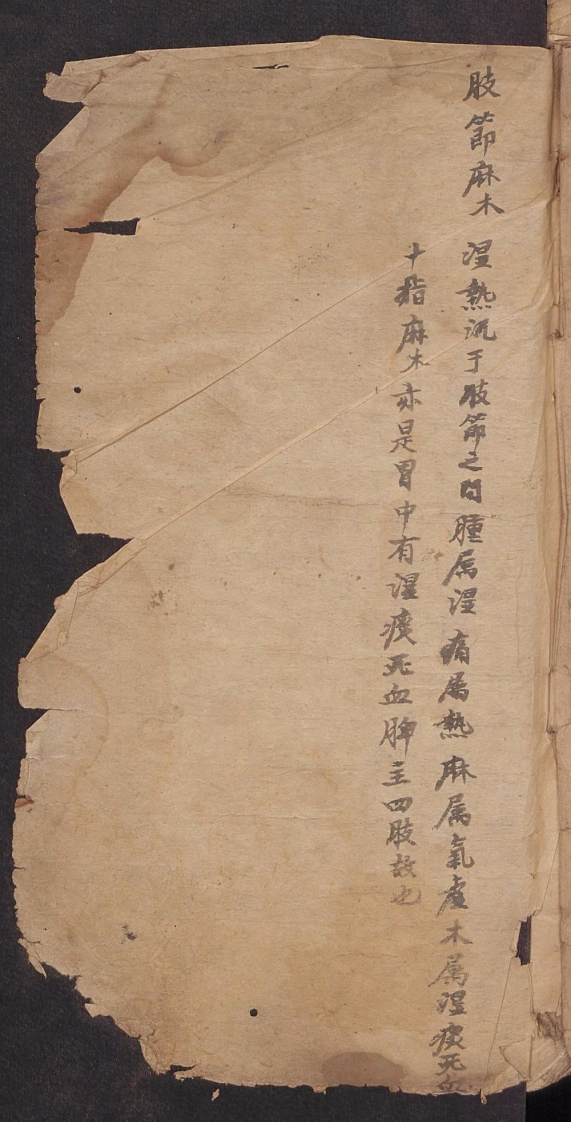 肢節麻木 湿熱流于肢節之間腫属湿痛属熱麻属氣虚木属湿痰死血
十指麻木亦是胃中有湿痰死血脾主四肢故也